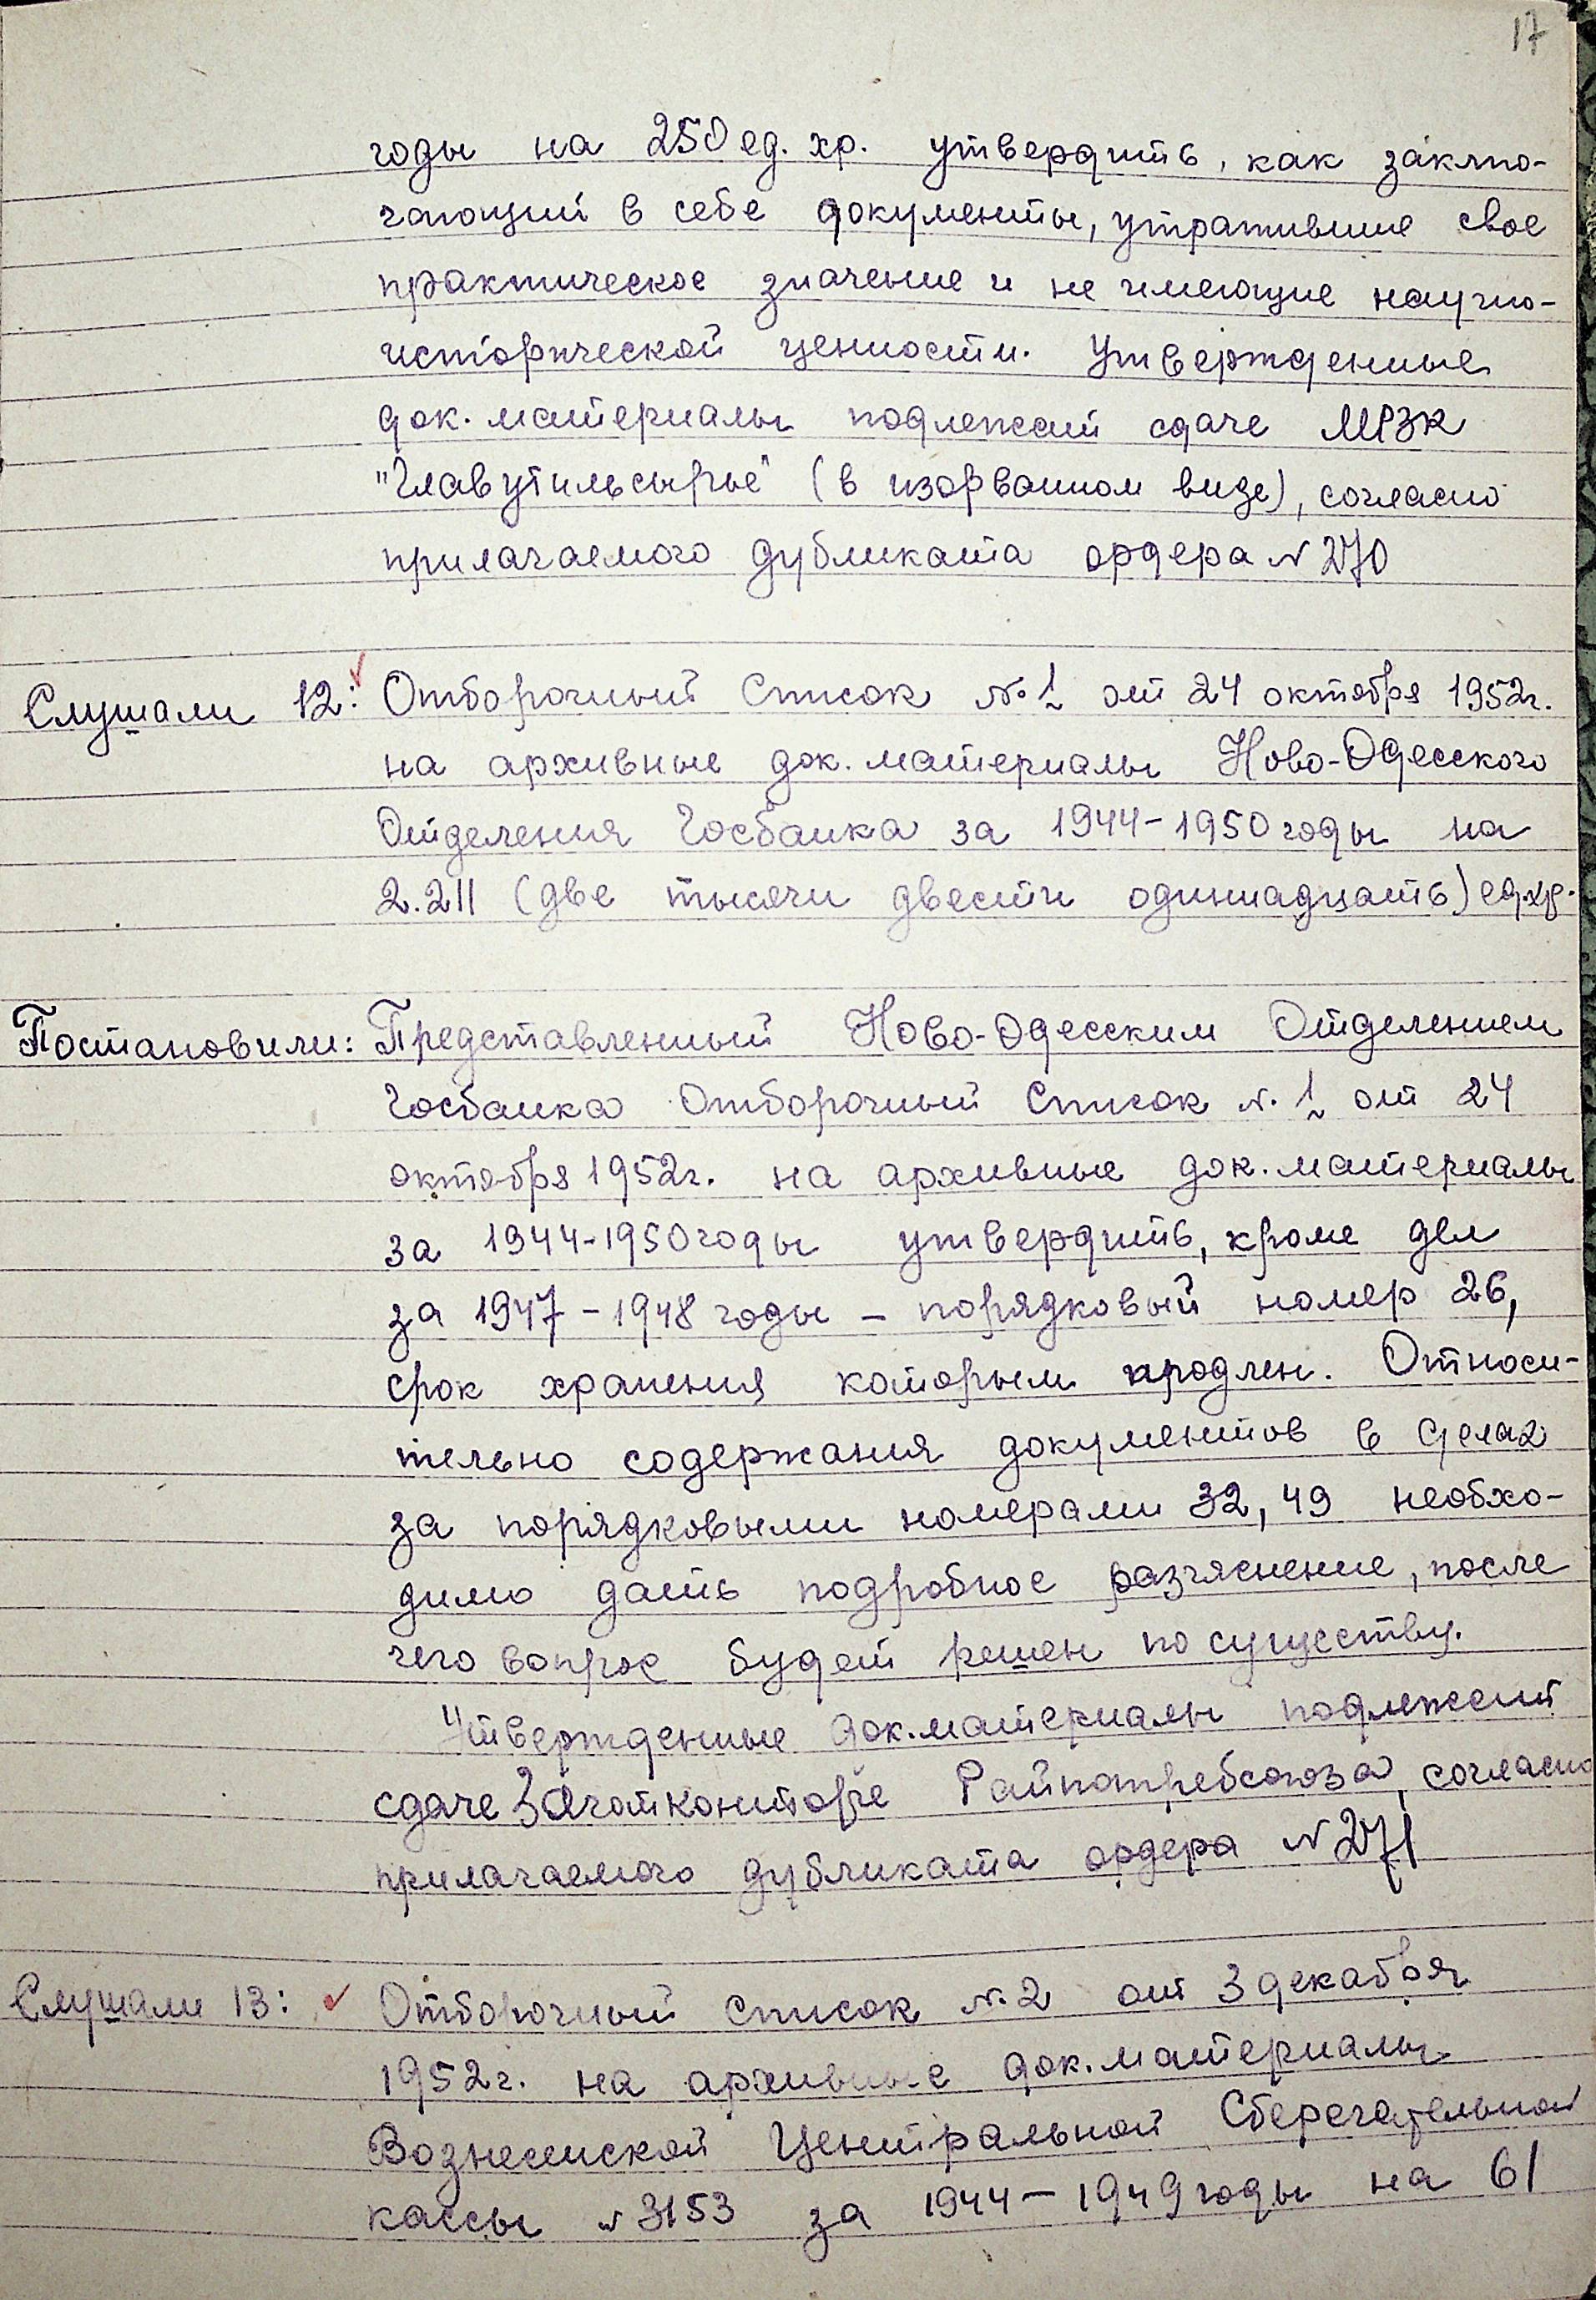 17
годы на 250 ед. хр. утвердить, как заклю-
чающий в себе документы, утратившие свое
практическое значение и не имеющие научно-
исторической ценности. Утвержденные
док. материалы подлежат сдаче МРЗК
"Главутильсырье" (в изорванном виде), согласно
прилагаемого дубликата ордера № 270
Слушали 12: Отборочный Список № 1 от 24 октября 1952г.
на архивные док. материалы Ново-Одесского
Отделения Госбанка за 1944-1950 годы на
2.211 (две тысячи двести одиннадцать) ед.хр.
Постановили: Представленный Ново-Одесским Отделением
Госбанка Отборочный Список №. 1 от 24
октября 1952г. на архивные док. материалы
за 1944-1950 годы утвердить, кроме дел
за 1947-1948 годы - порядковый номер 26,
срок хранения которым продлен. Относи-
тельно содержания документов в делах
за порядковыми номерами 32, 49 необхо-
димо дать подробное разъяснение, после
чего вопрос будет решен по существу.
Утвержденные док. материалы подлежат
сдаче Заготконторе Райпотребсоюза, согласно
прилагаемого дубликата ордера № 271
Слушали 13: Отборочный список №. 2 от 3 декабря
1952г. на архивные док. материалы
Вознесенской Центральной Сберегательной
кассы № 3153 за 1944-1949 годы на 61